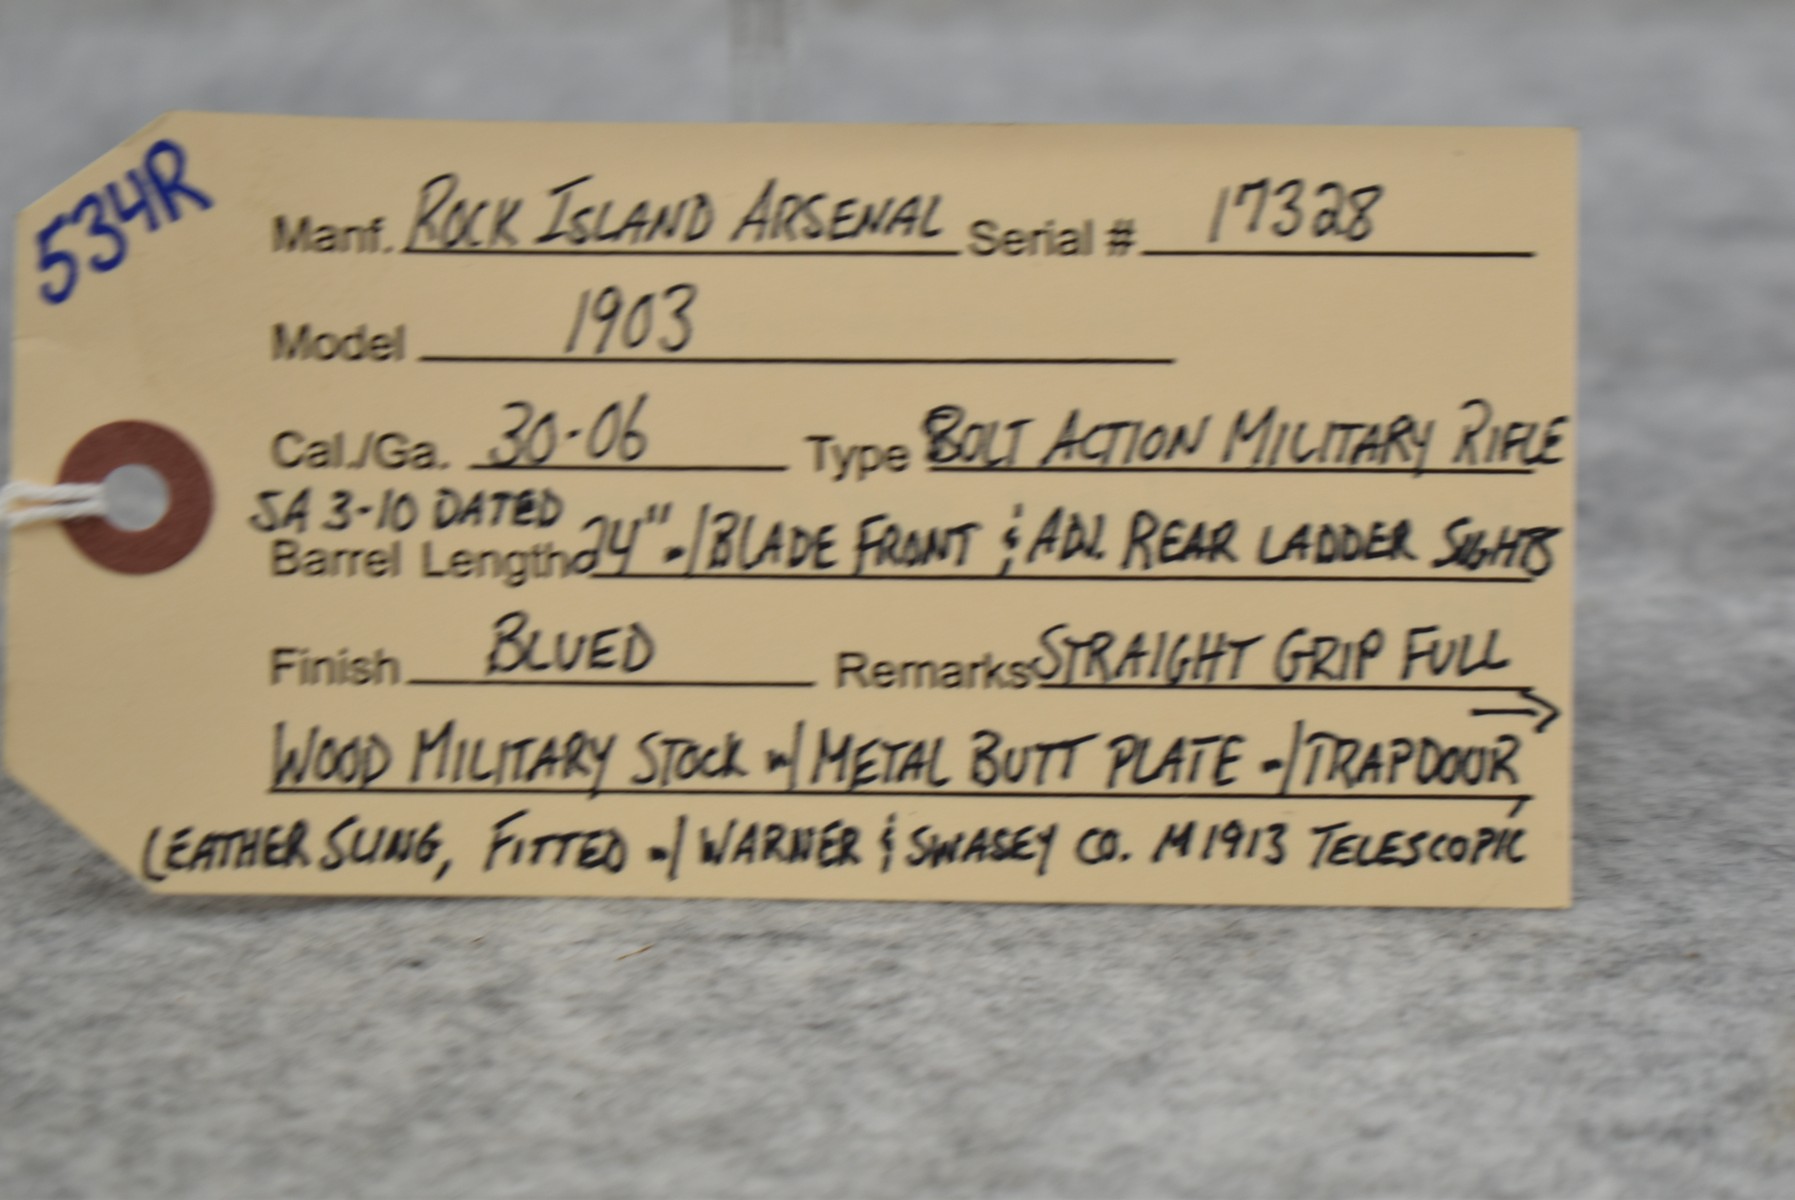 534R
Manf. ROCK ISLAND ARSENAL Serial # 17328
Model 1903
Cal./Ga. 30-06 Type BOLT ACTION MILITARY RIFLE
SA 3-10 DATED
Barrel Length 24" w/ BLADE FRONT & ADJ. REAR LADDER SIGHTS
Finish BLUED Remarks STRAIGHT GRIP FULL →
WOOD MILITARY STOCK w/ METAL BUTT PLATE w/ TRAPDOOR,
LEATHER SLING, FITTED w/ WARNER & SWASEY CO. M1913 TELESCOPIC